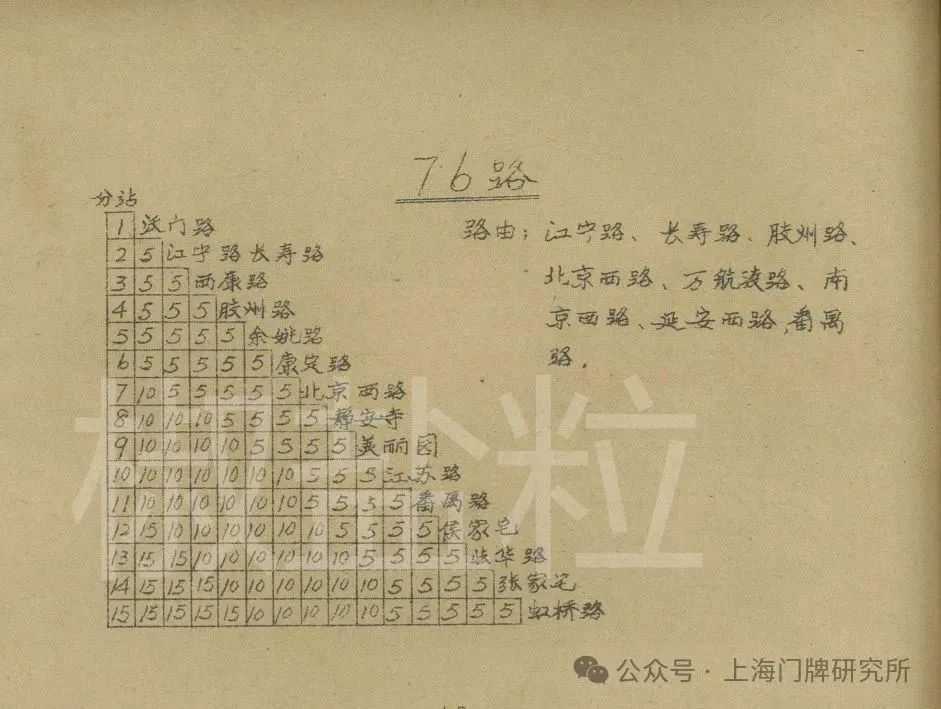 76路
分站
1 沃门路
2 5 江宁路长寿路
3 5 5 西康路
4 5 5 5 胶州路
5 5 5 5 5 余姚路
6 5 5 5 5 5 康定路
7 10 5 5 5 5 5 北京西路
8 10 10 10 5 5 5 5 静安寺
9 10 10 10 10 5 5 5 5 美丽园
10 10 10 10 10 10 10 5 5 5 江苏路
11 10 10 10 10 10 10 5 5 5 5 番禺路
12 15 10 10 10 10 10 10 5 5 5 5 侯家宅
13 15 15 10 10 10 10 10 10 5 5 5 5 法华路
14 15 15 15 10 10 10 10 10 10 5 5 5 5 张家宅
15 15 15 15 15 10 10 10 10 10 5 5 5 5 5 虹桥路
路由；江宁路、长寿路、胶州路、
北京西路、万航渡路、南
京西路、延安西路,番禺
路.
粒
公众号·上海门牌研究所